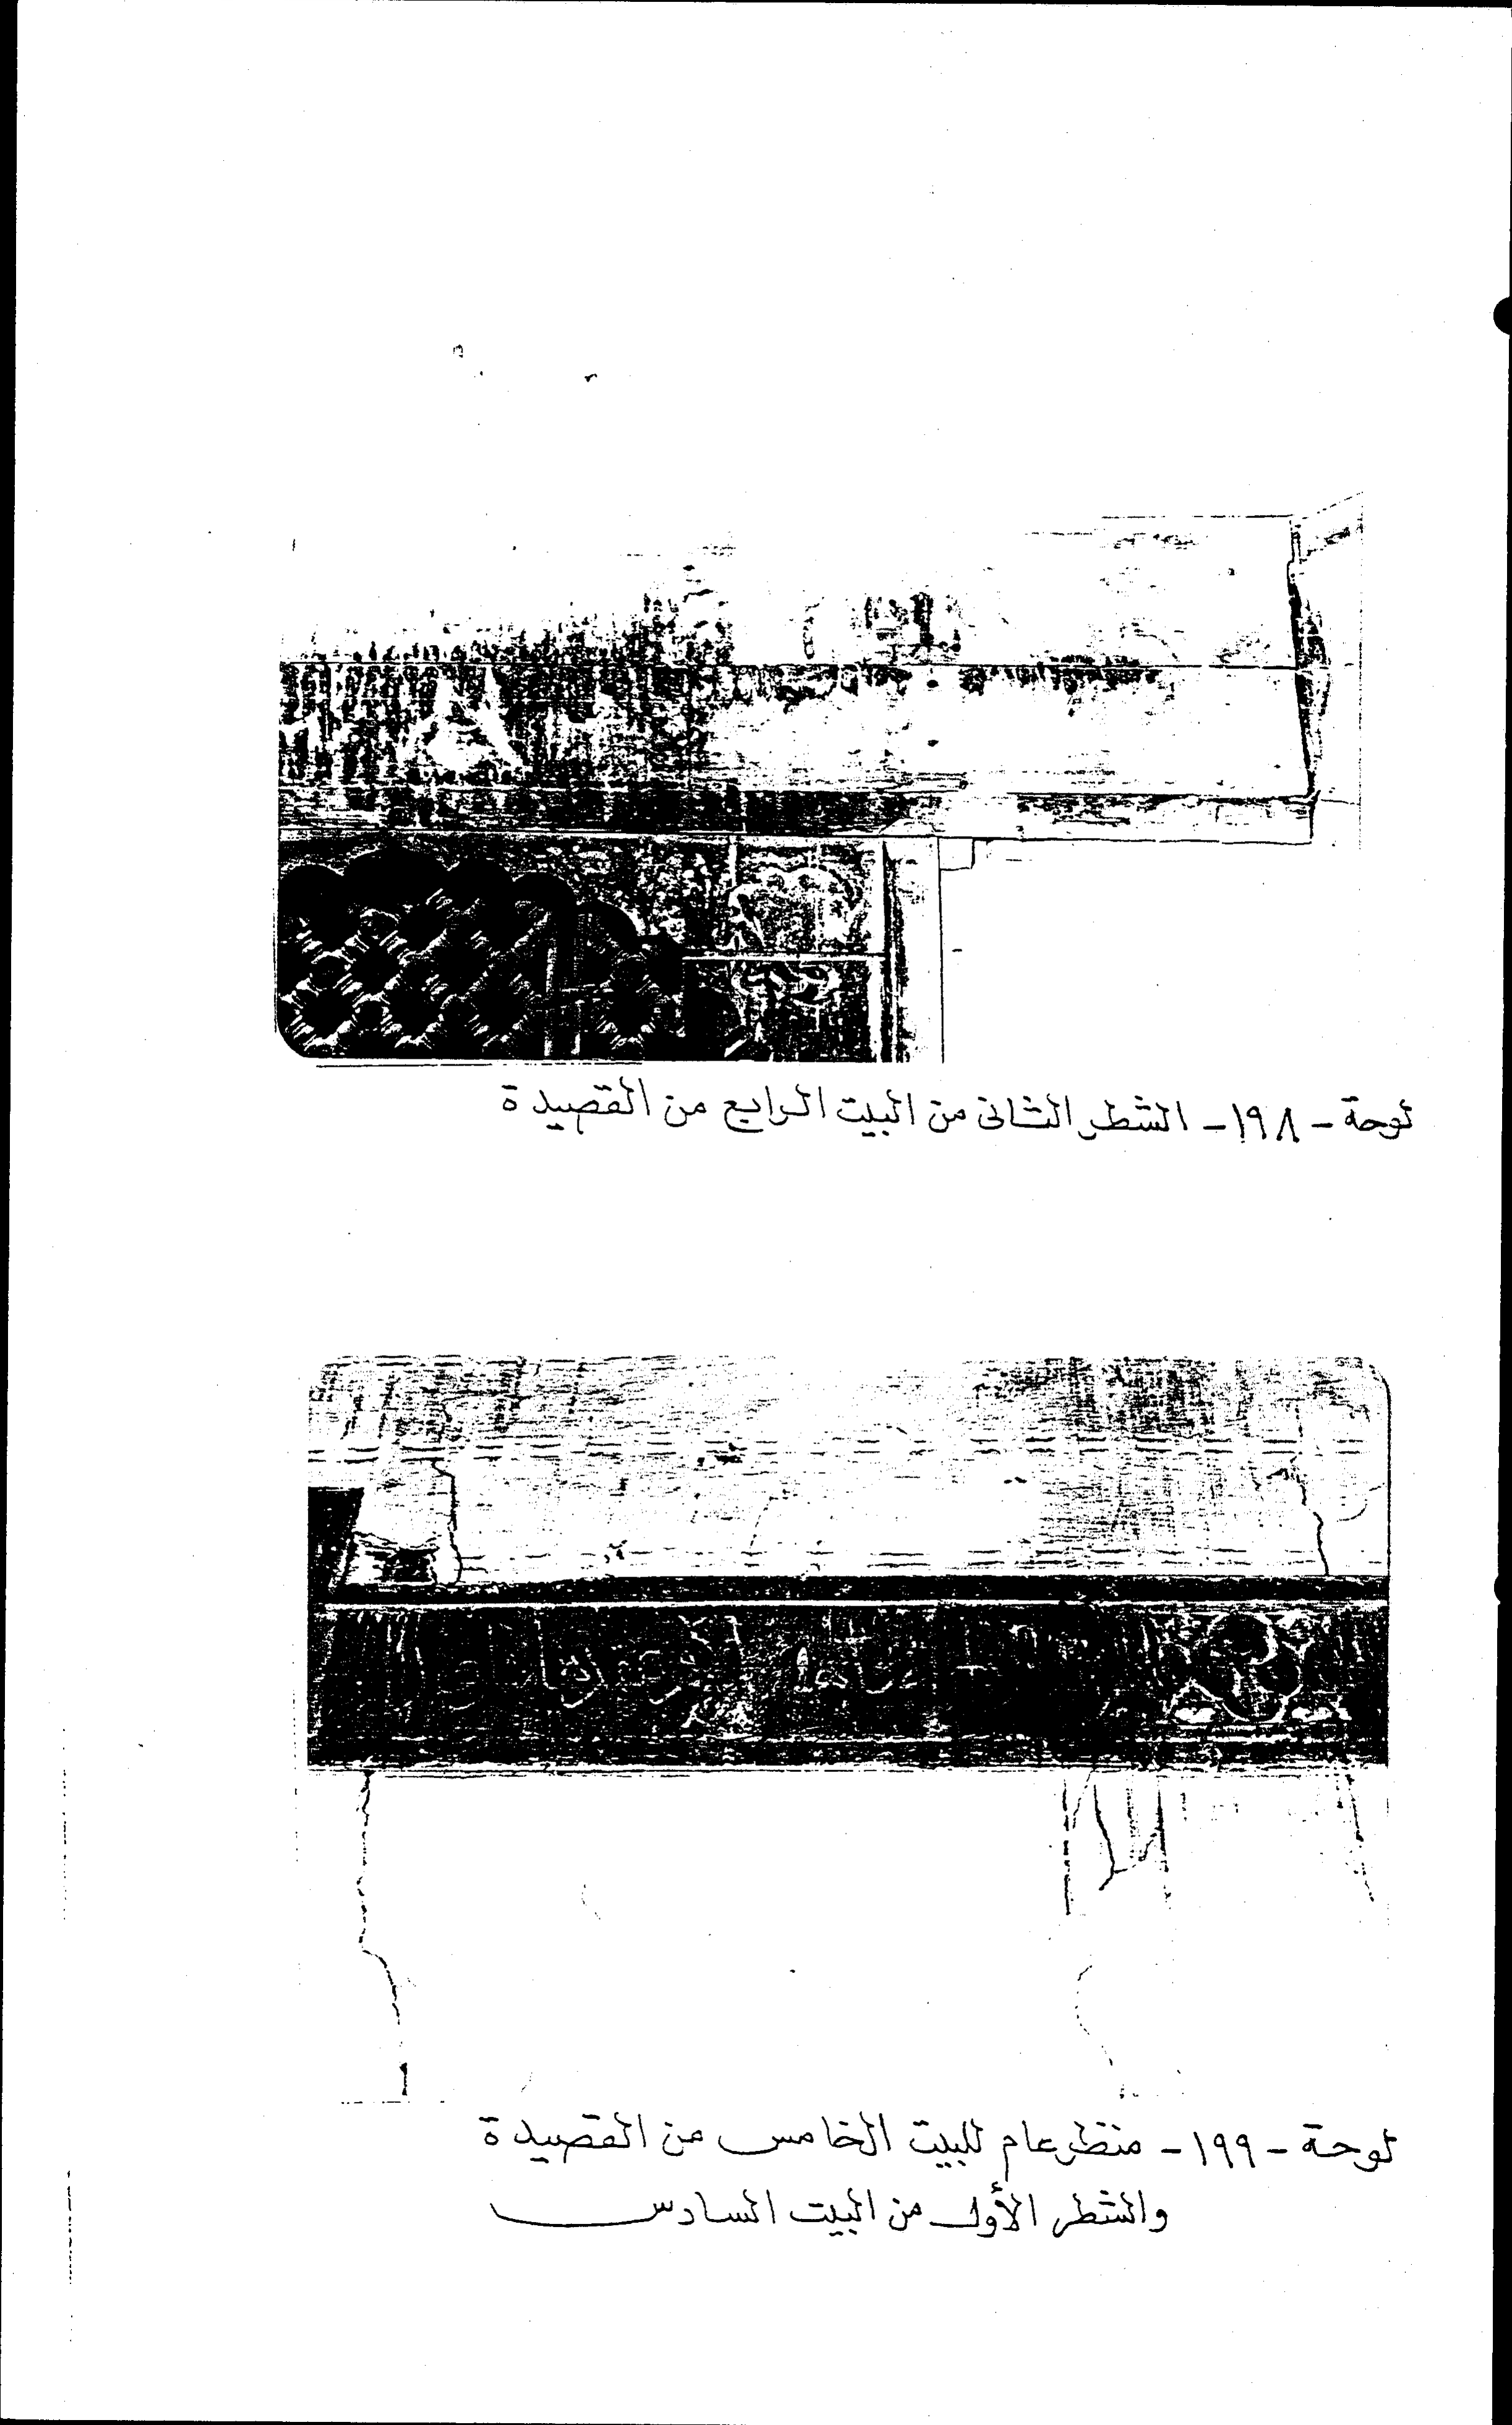 لوحة - ١٩٨ - الشطر الثانى من البيت الرابع من القصيدة
لوحة - ١٩٩ - منظر عام للبيت الخامس من القصيدة
والشطر الأول من البيت السادس